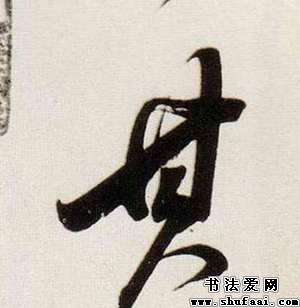 其
书法爱网
www.shufaai.com